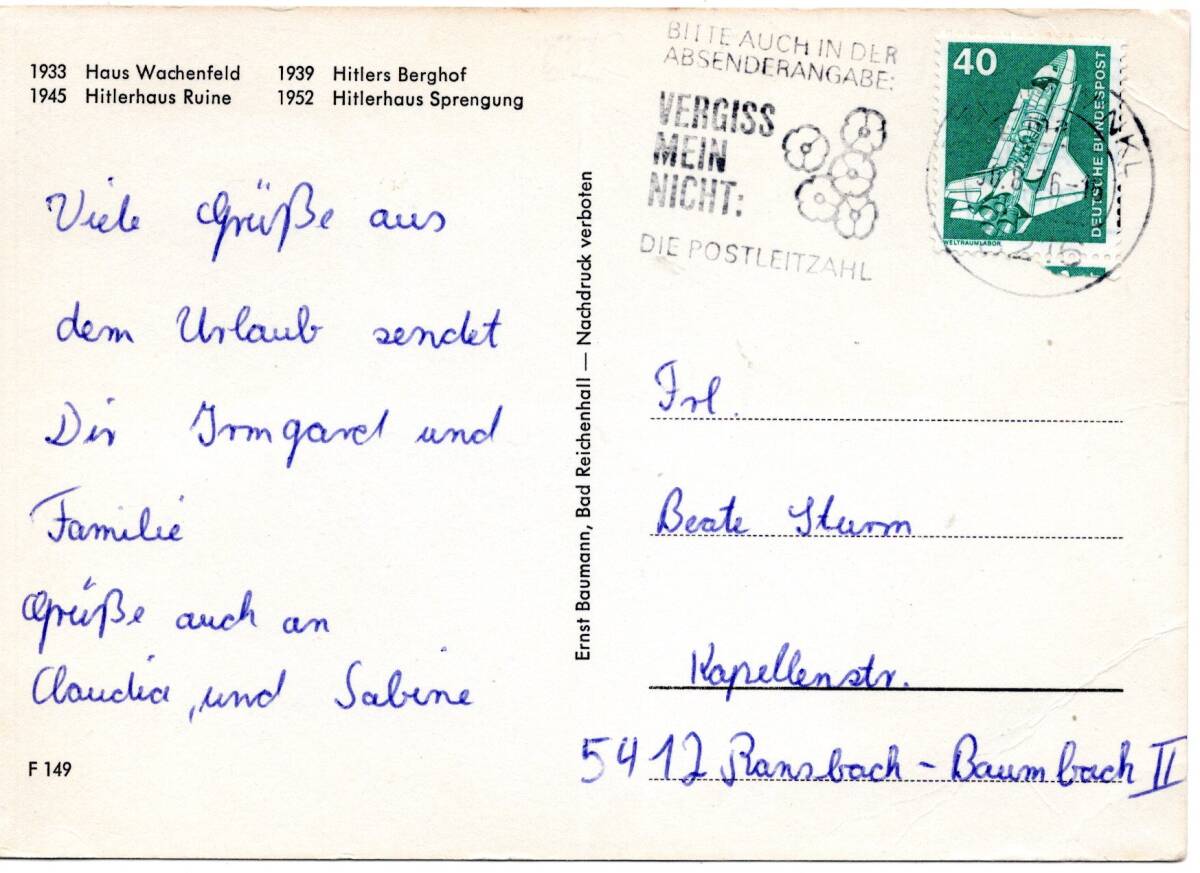 1933 Haus Wachenfeld 1939 Hitlers Berghof
1945 Hitlerhaus Ruine 1952 Hitlerhaus Sprengung
Viele Grüße aus
dem Urlaub sendet
Dir Irmgard und
Familie
Grüße auch an
Claudia, und Sabine
F 149
Ernst Baumann, Bad Reichenhall — Nachdruck verboten
BITTE AUCH IN DER
ABSENDERANGABE:
VERGISS
MEIN
NICHT:
DIE POSTLEITZAHL
40
DEUTSCHE BUNDESPOST
WELTRAUMLABOR
Frl.
Beate Sturm
Kapellenstr.
5412 Ransbach-Baumbach II